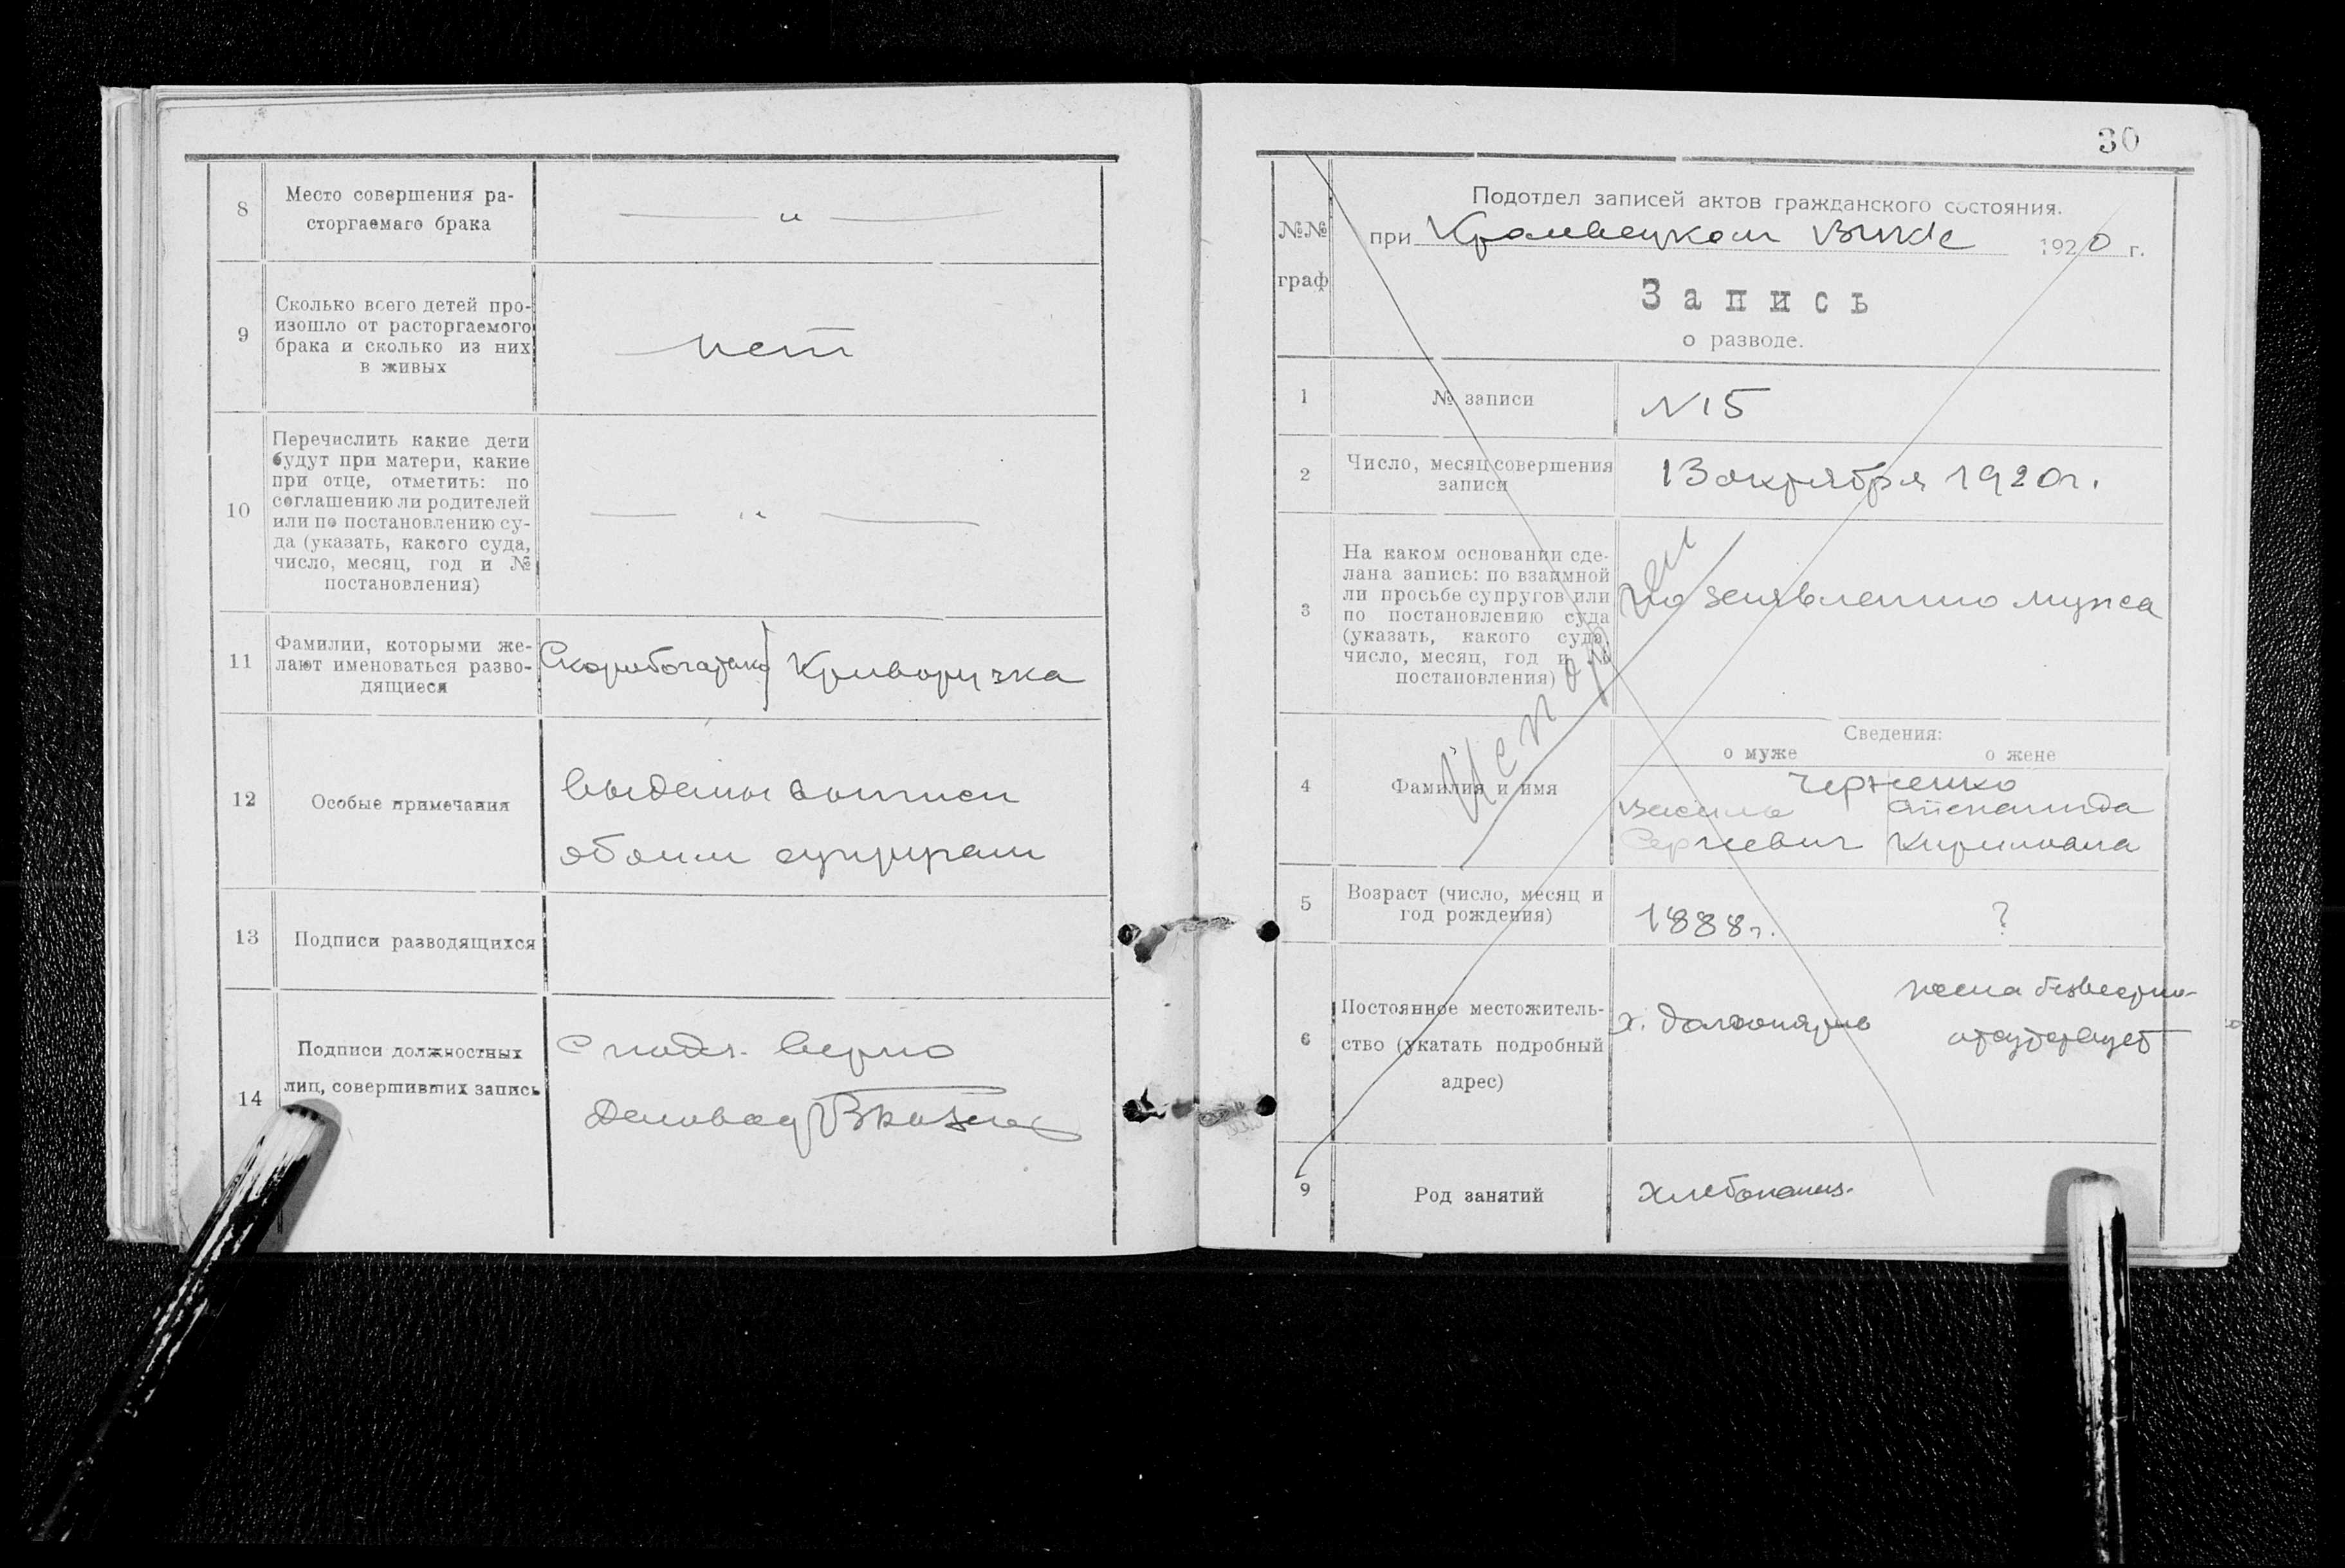 8
Место совершения ра-
сторгаемаго брака
— „ —
9
Сколько всего детей про-
изошло от расторгаемого
брака и сколько из них
в живых
нет
10
Перечислить какие дети
будут при матери, какие
при отце, отметить: по
соглашению ли родителей
или по постановлению су-
да (указать, какого суда,
число, месяц, год и №
постановления)
— „ —
11
Фамилии, которыми же-
лают именоваться разво-
дящиеся
Скоробогатько Криворучка
12
Особые примечания
выданы выписи
обоим супругам
13
Подписи разводящихся
14
Подписи должностных
лиц, совершивших запись
С подл. верно
30
№№
граф
Подотдел записей актов гражданского состояния.
при Кролевецком Вике 1920 г.
Запись
о разводе.
1
№ записи
N15
2
Число, месяц совершения
записи
13 октября 1920 г.
3
На каком основании сде-
лана запись: по взаимной
ли просьбе супругов или
по постановлению суда
(указать, какого суда,
число, месяц, год и №
постановления)
По заявлению мужа
4
Фамилия и имя
Сведения:
о муже
о жене
Черненко
Василь
Сергеевич
Степанида
Кириловна
5
Возраст (число, месяц и
год рождения)
1888 г.
?
6
Постоянное местожитель-
ство (укатать подробный
адрес)
х.
жена безвестно
отсутствует
9
Род занятий
Хлебопашц.
Испорчен